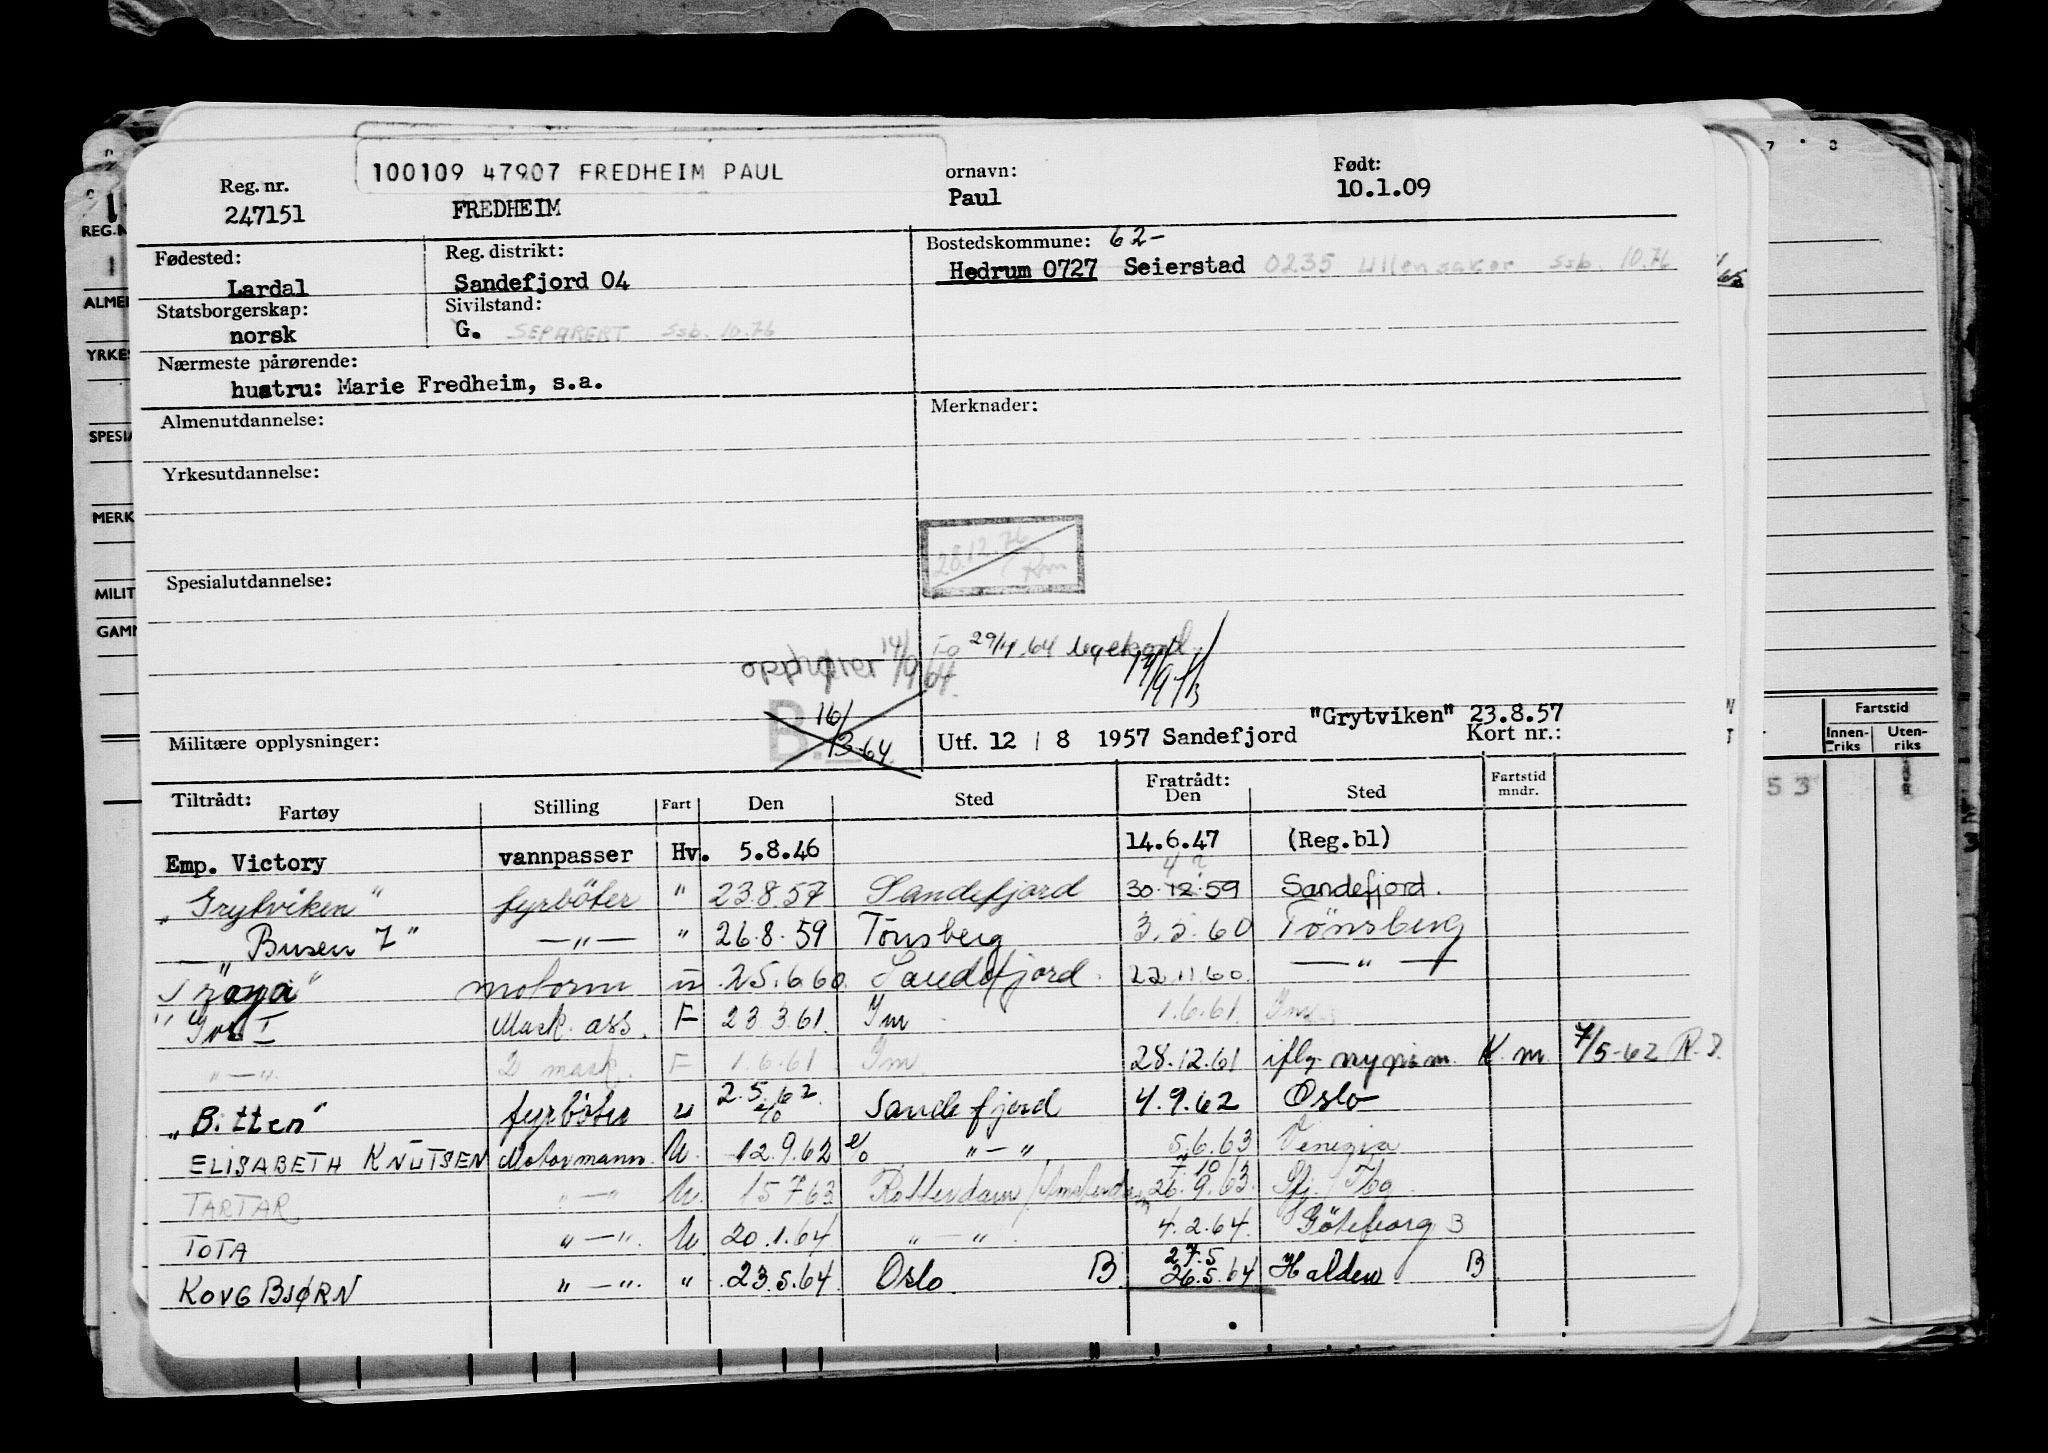 100109 47907 FREDHEIM PAUL
Reg. nr. ornavn: Født:
247151 FREDHEIM Paul 10.1.09
Fødested: Reg. distrikt: Bostedskommune: 62-
Lardal Sandefjord 04 Hedrum 0727 Seierstad 0235 Ullensaker ssb. 10.76
Statsborgerskap: Sivilstand:
norsk G. SEPARERT ssb. 10.76
Nærmeste pårørende:
hustru: Marie Fredheim, s.a.
Almenutdannelse: Merknader:
Yrkesutdannelse:
28.12.76
Spesialutdannelse:
opphører 14/9 64. 29/4.64 legekontr. 14/9
B. 16/ 64.
"Grytviken" 23.8.57
Militære opplysninger: Utf. 12 / 8 1957 Sandefjord Kort nr.:
Tiltrådt: Fartøy Stilling Fart Den Sted Fratrådt: Den Sted Fartstid mndr.
Emp. Victory vannpasser Hv. 5.8.46 14.6.47 (Reg.bl)
"Grytviken" fyrbøter " 23.8.57 Sandefjord 30.12.59 Sandefjord.
4 ?
"Busen 7" —"— " 26.8.59 Tønsberg 3.5.60 Tønsberg
motorm 25.6.60. Sandefjord. 22.11.60. —"—
Mask. ass. F 23.3.61. Im 1.6.61. Im
"—" 2 mask. F 1.6.61 Im 28.12.61 iflg. K. m. 7/5-62
"Bitten" fyrbøter u 2.5.62. Sandefjord 4.9.62 Oslo
ELISABETH KNUTSEN Motormann. U. 12.9.62 "—" 5.6.63 Venezia
TARTAR "—" U. 15 7 63 Rotterdam/Amsterdam 26.9.63. Sfj. / Tbg
7.10
TOTA "—". U 20.1.64 "—". 4.2.64. Göteborg B
KONG BJØRN "—". " 23.5.64. Oslo. B. 26.5.64 Halden B
27.5
REG.N
ALMEN
YRKES
SPESIA
MERK
MILIT
GAMM
Fartstid
Innenriks Utenriks
53